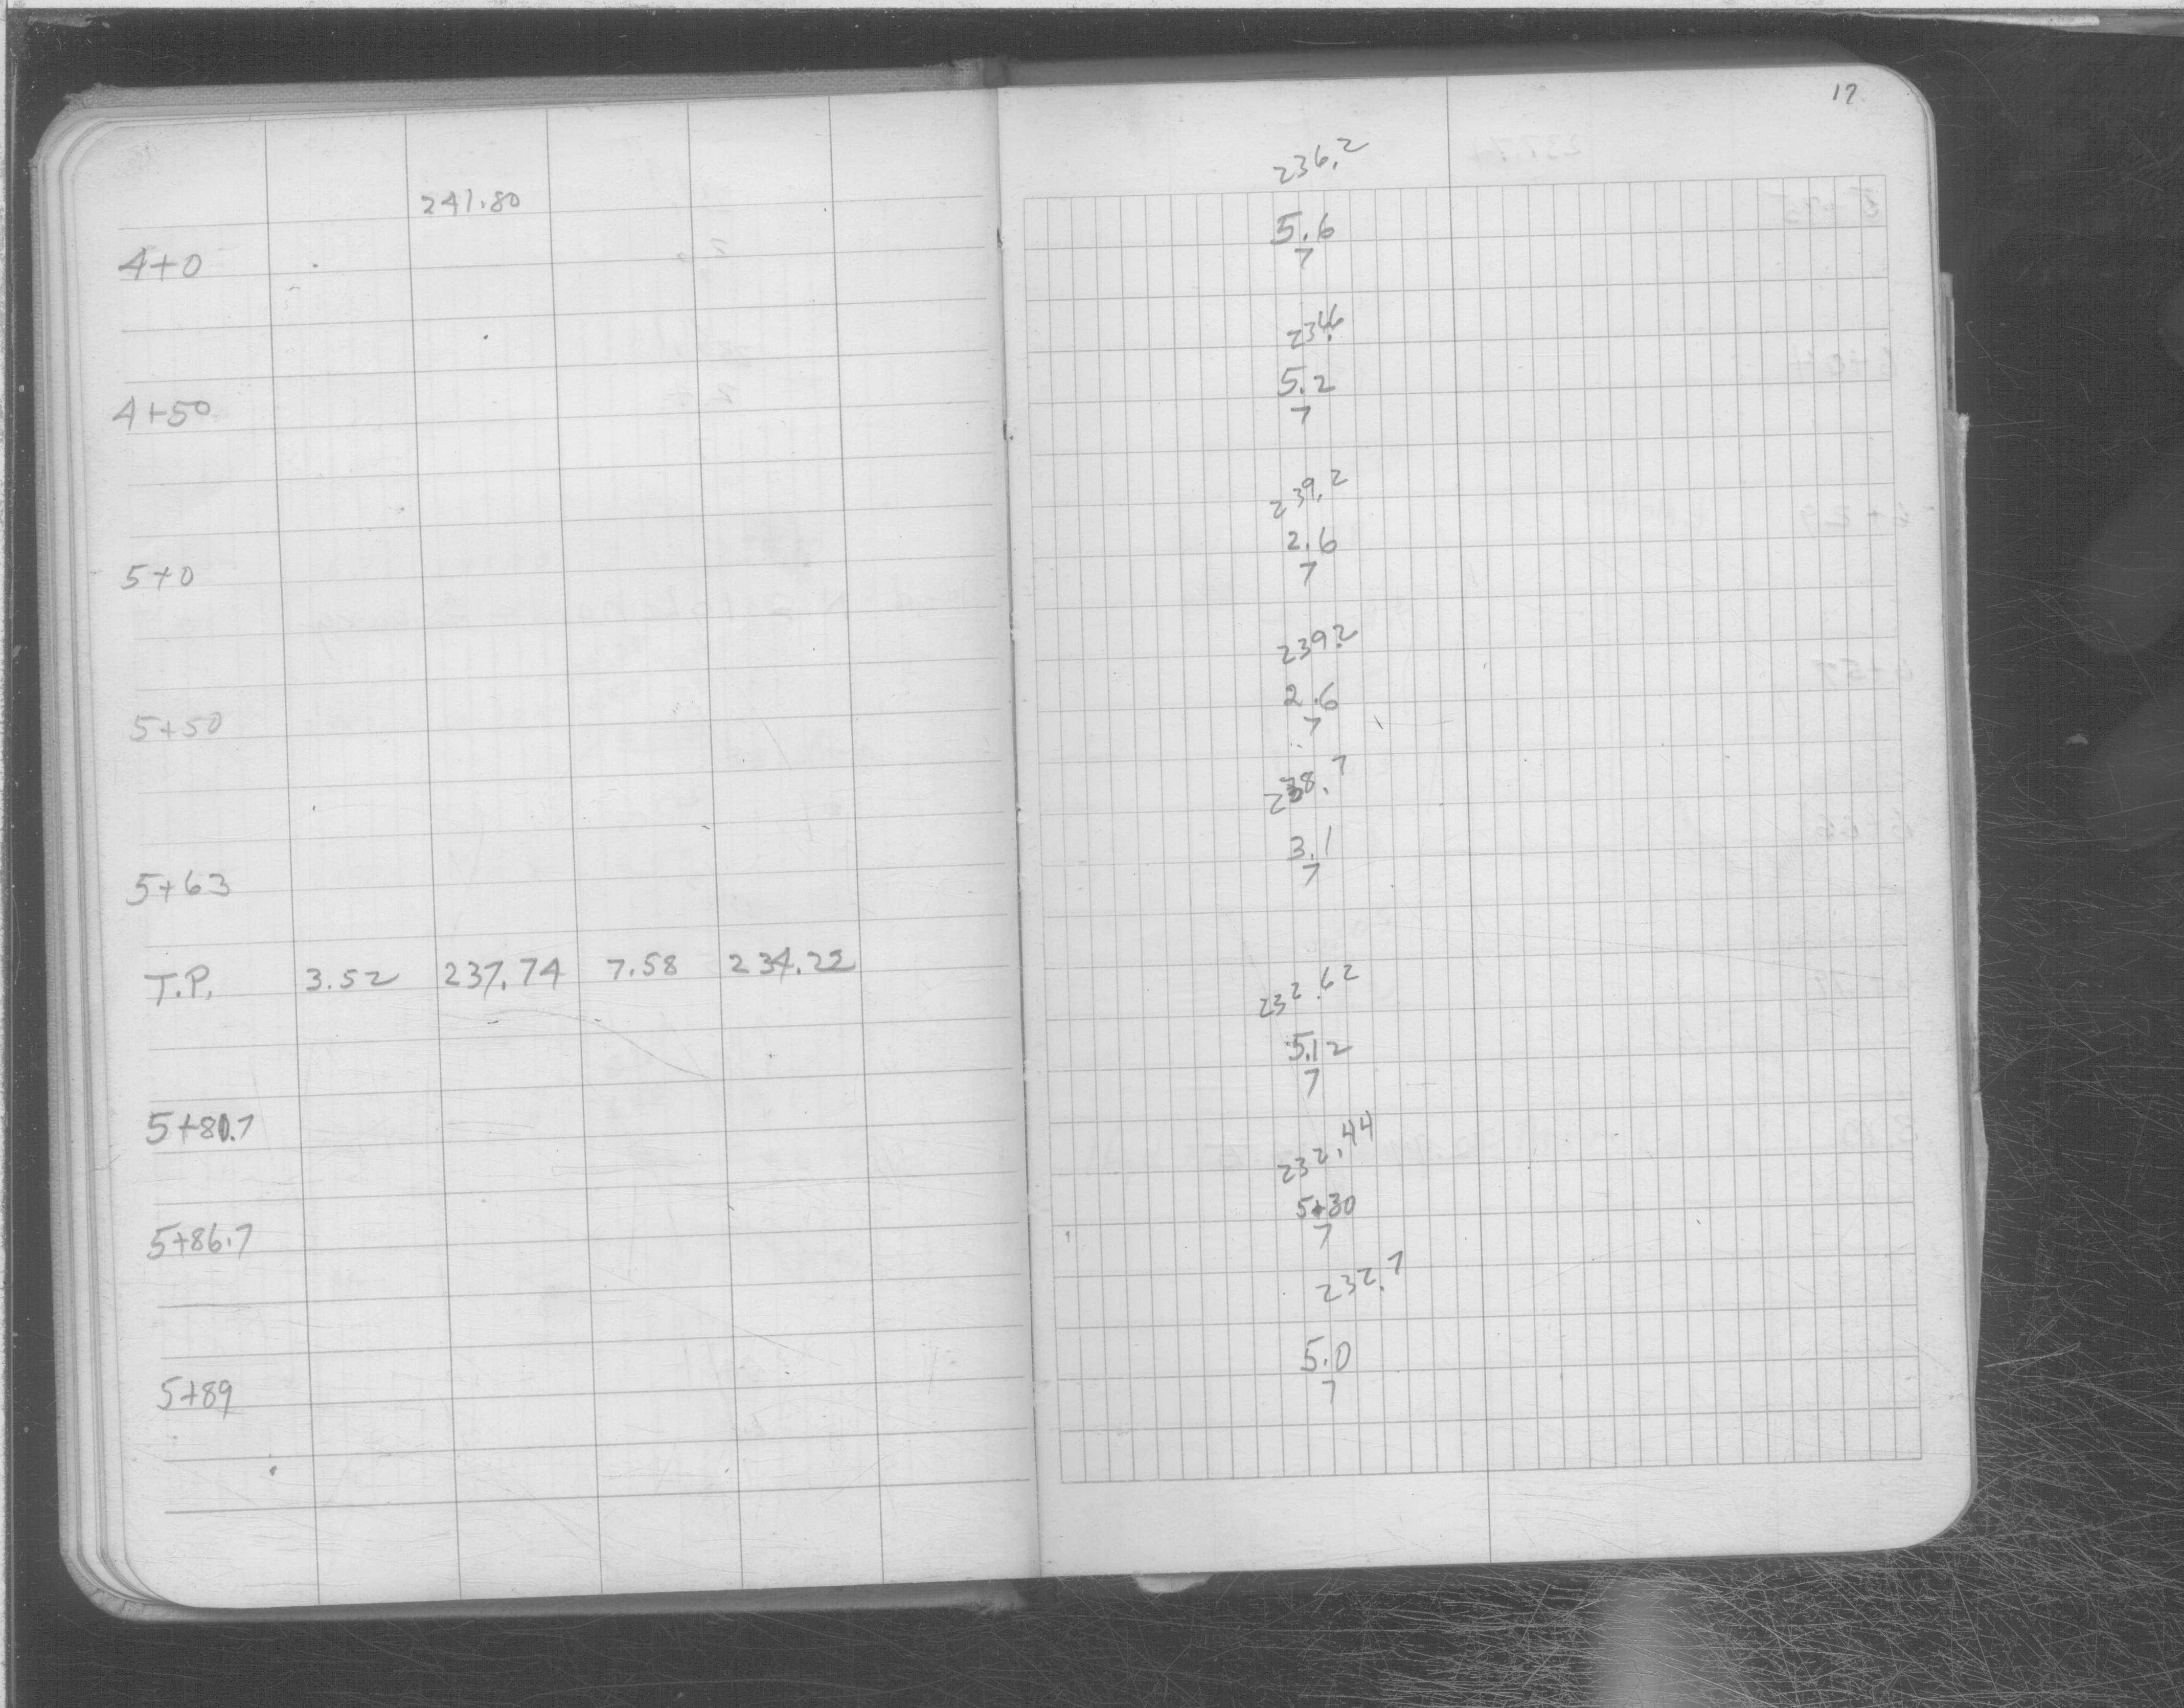 241.80
4+0
4+50
5+0
5+50
5+63
T.P. 3.52 237.74 7.58 234.22
5+80.7
5+86.7
5+89
17
236.2
5.6
7
5.2
7
239.2
2.6
7
239.2
2.6
7
238.7
3.1
7
232.62
5.12
7
232.44
5+30
7
232.7
5.0
7